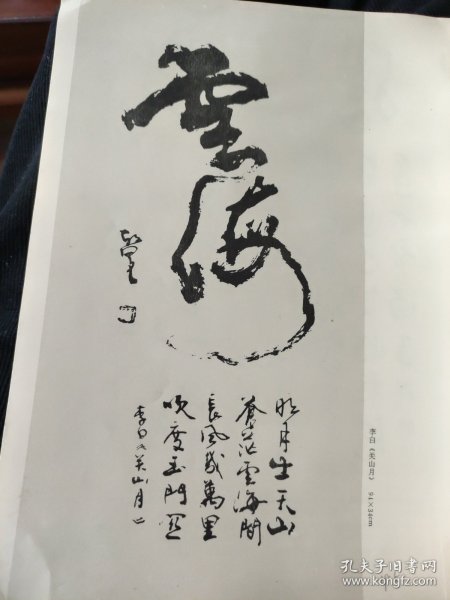 雲海
明月出天山
蒼茫雲海間
長風幾萬里
吹度玉門關
李白《关山月》
李白《关山月》 94×34cm
孔夫子旧书网
www.kongfz.com